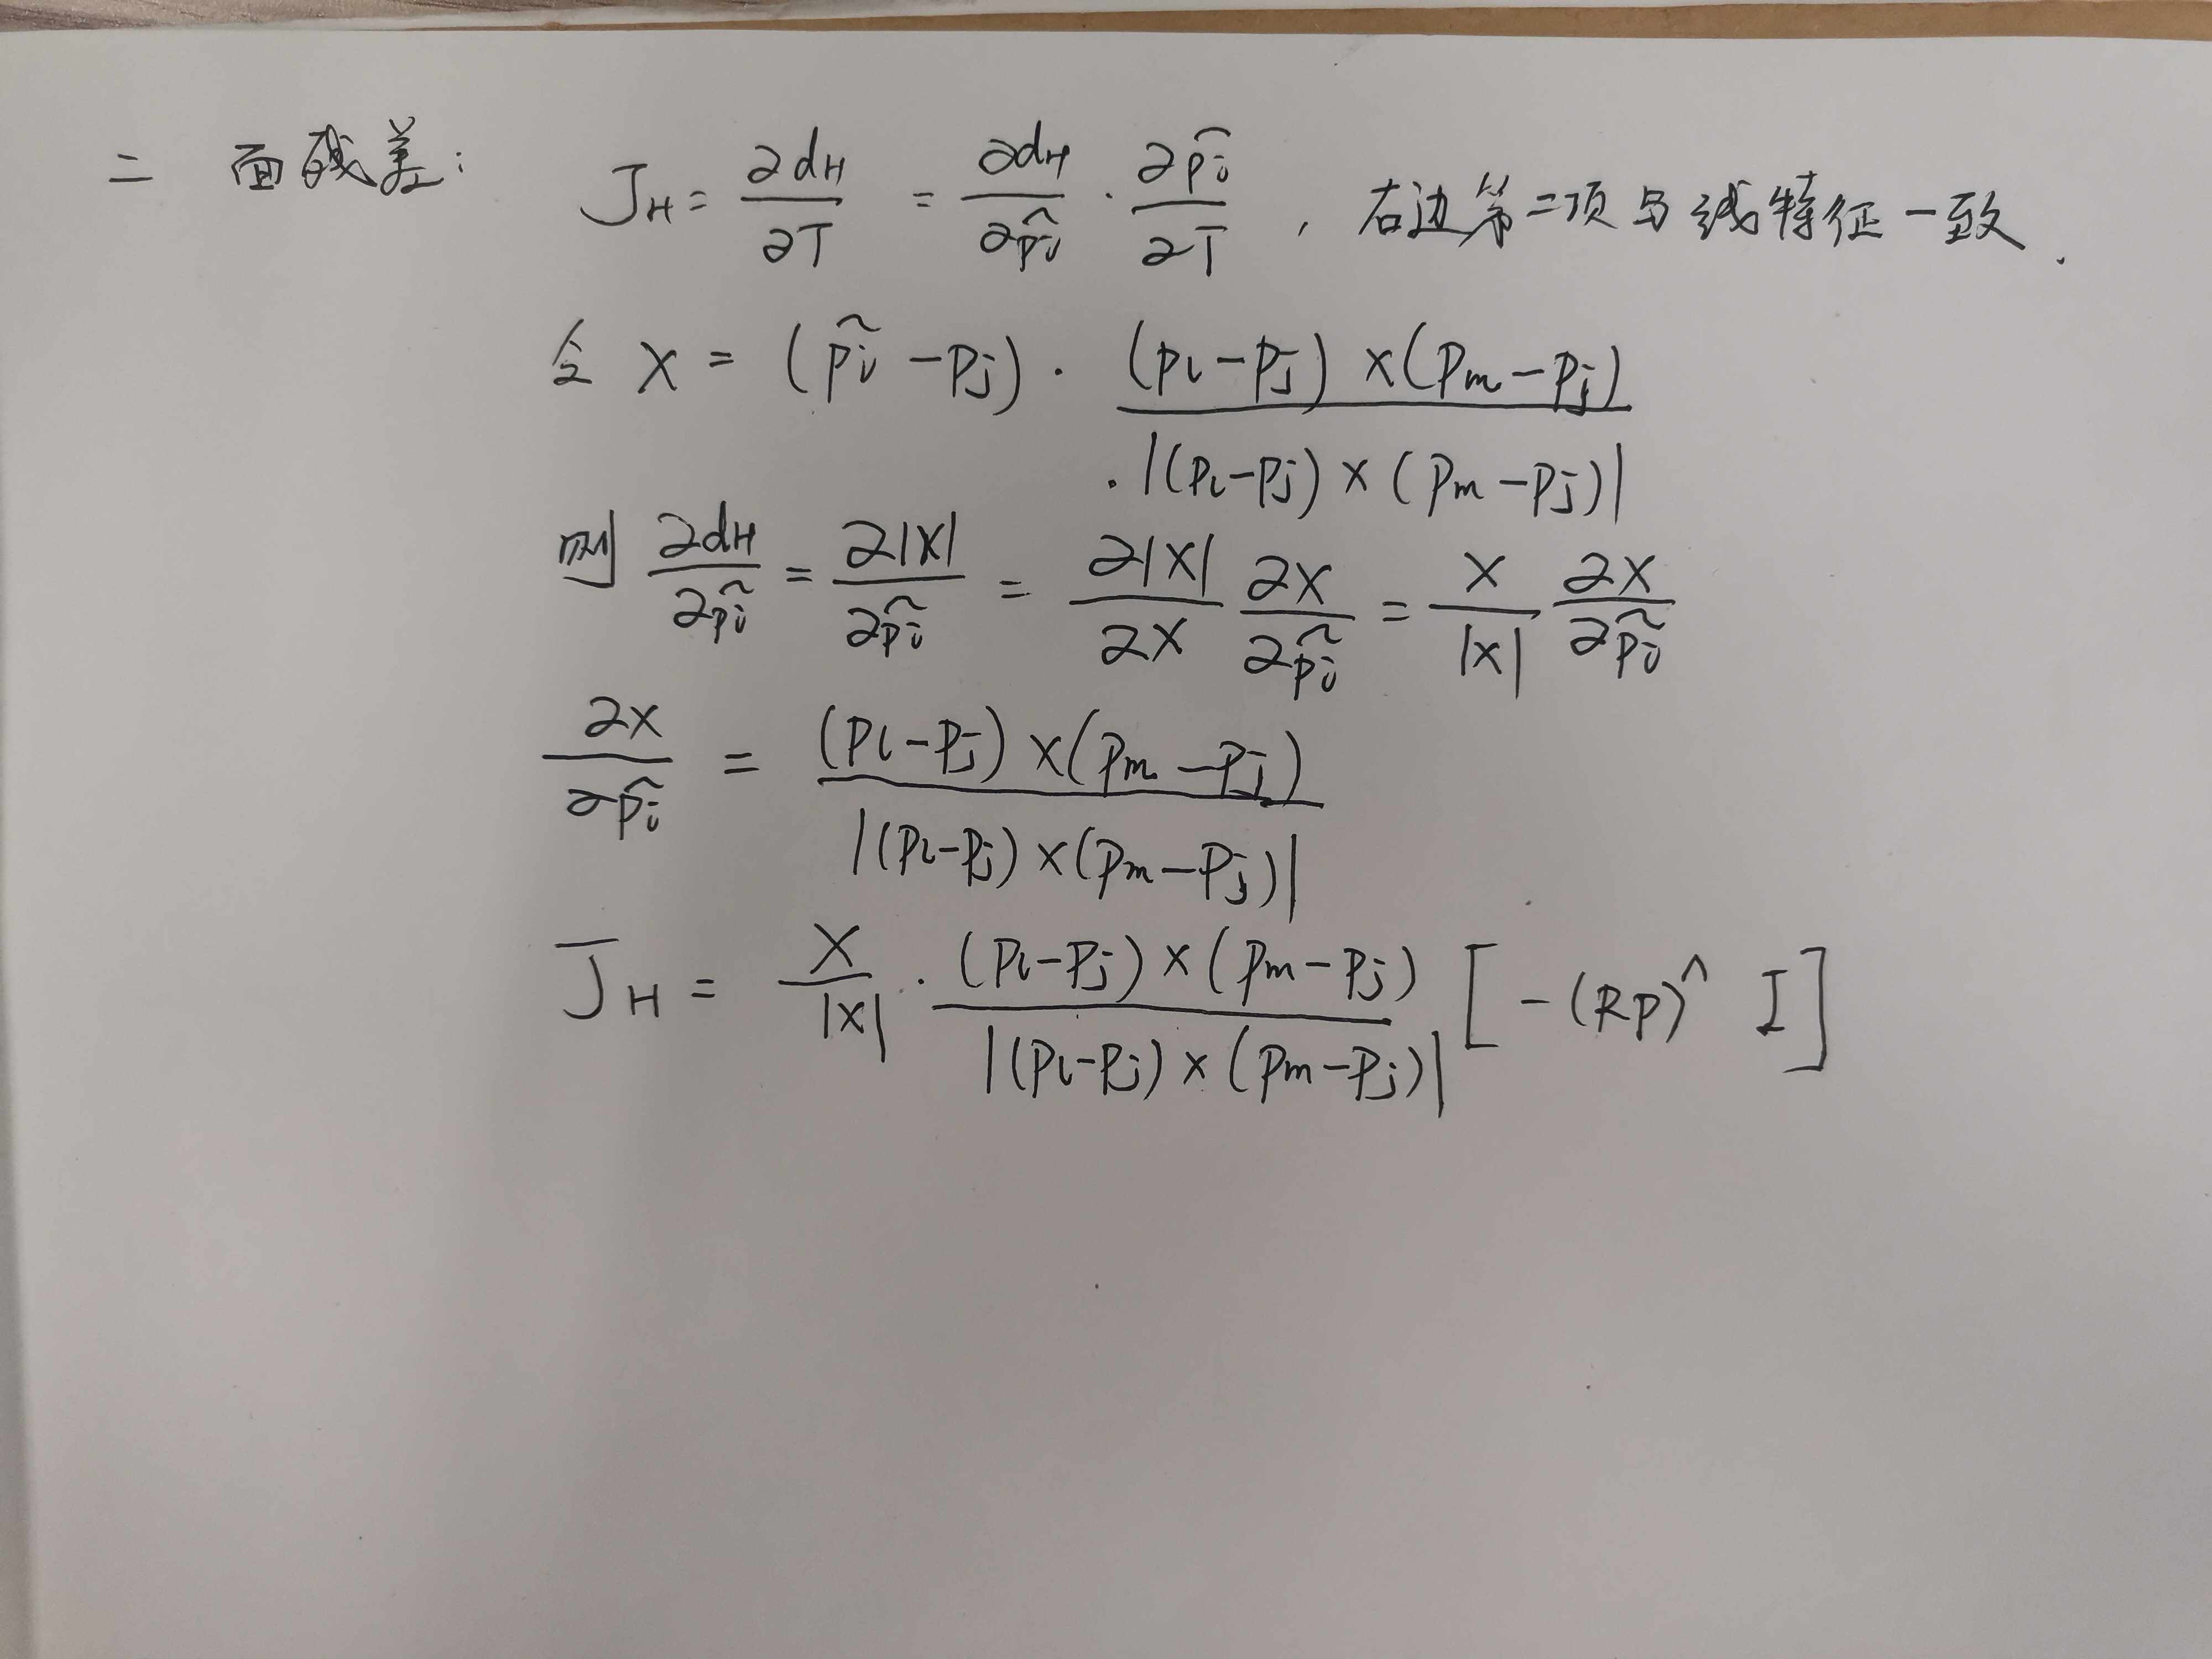 二 面残差: J_H = ∂d_H/∂T = ∂d_H/∂p̃_i · ∂p̃_i/∂T , 右边第二项与线特征一致.
令 X = (p̃_i - p_j) · (p_l - p_j) × (p_m - p_j) / |(p_l - p_j) × (p_m - p_j)|
则 ∂d_H/∂p̃_i = ∂|X|/∂p̃_i = ∂|X|/∂X ∂X/∂p̃_i = X/|X| ∂X/∂p̃_i
∂X/∂p̃_i = (p_l - p_j) × (p_m - p_j) / |(p_l - p_j) × (p_m - p_j)|
J_H = X/|X| · (p_l - p_j) × (p_m - p_j) / |(p_l - p_j) × (p_m - p_j)| [ -(Rp)^∧ I ]